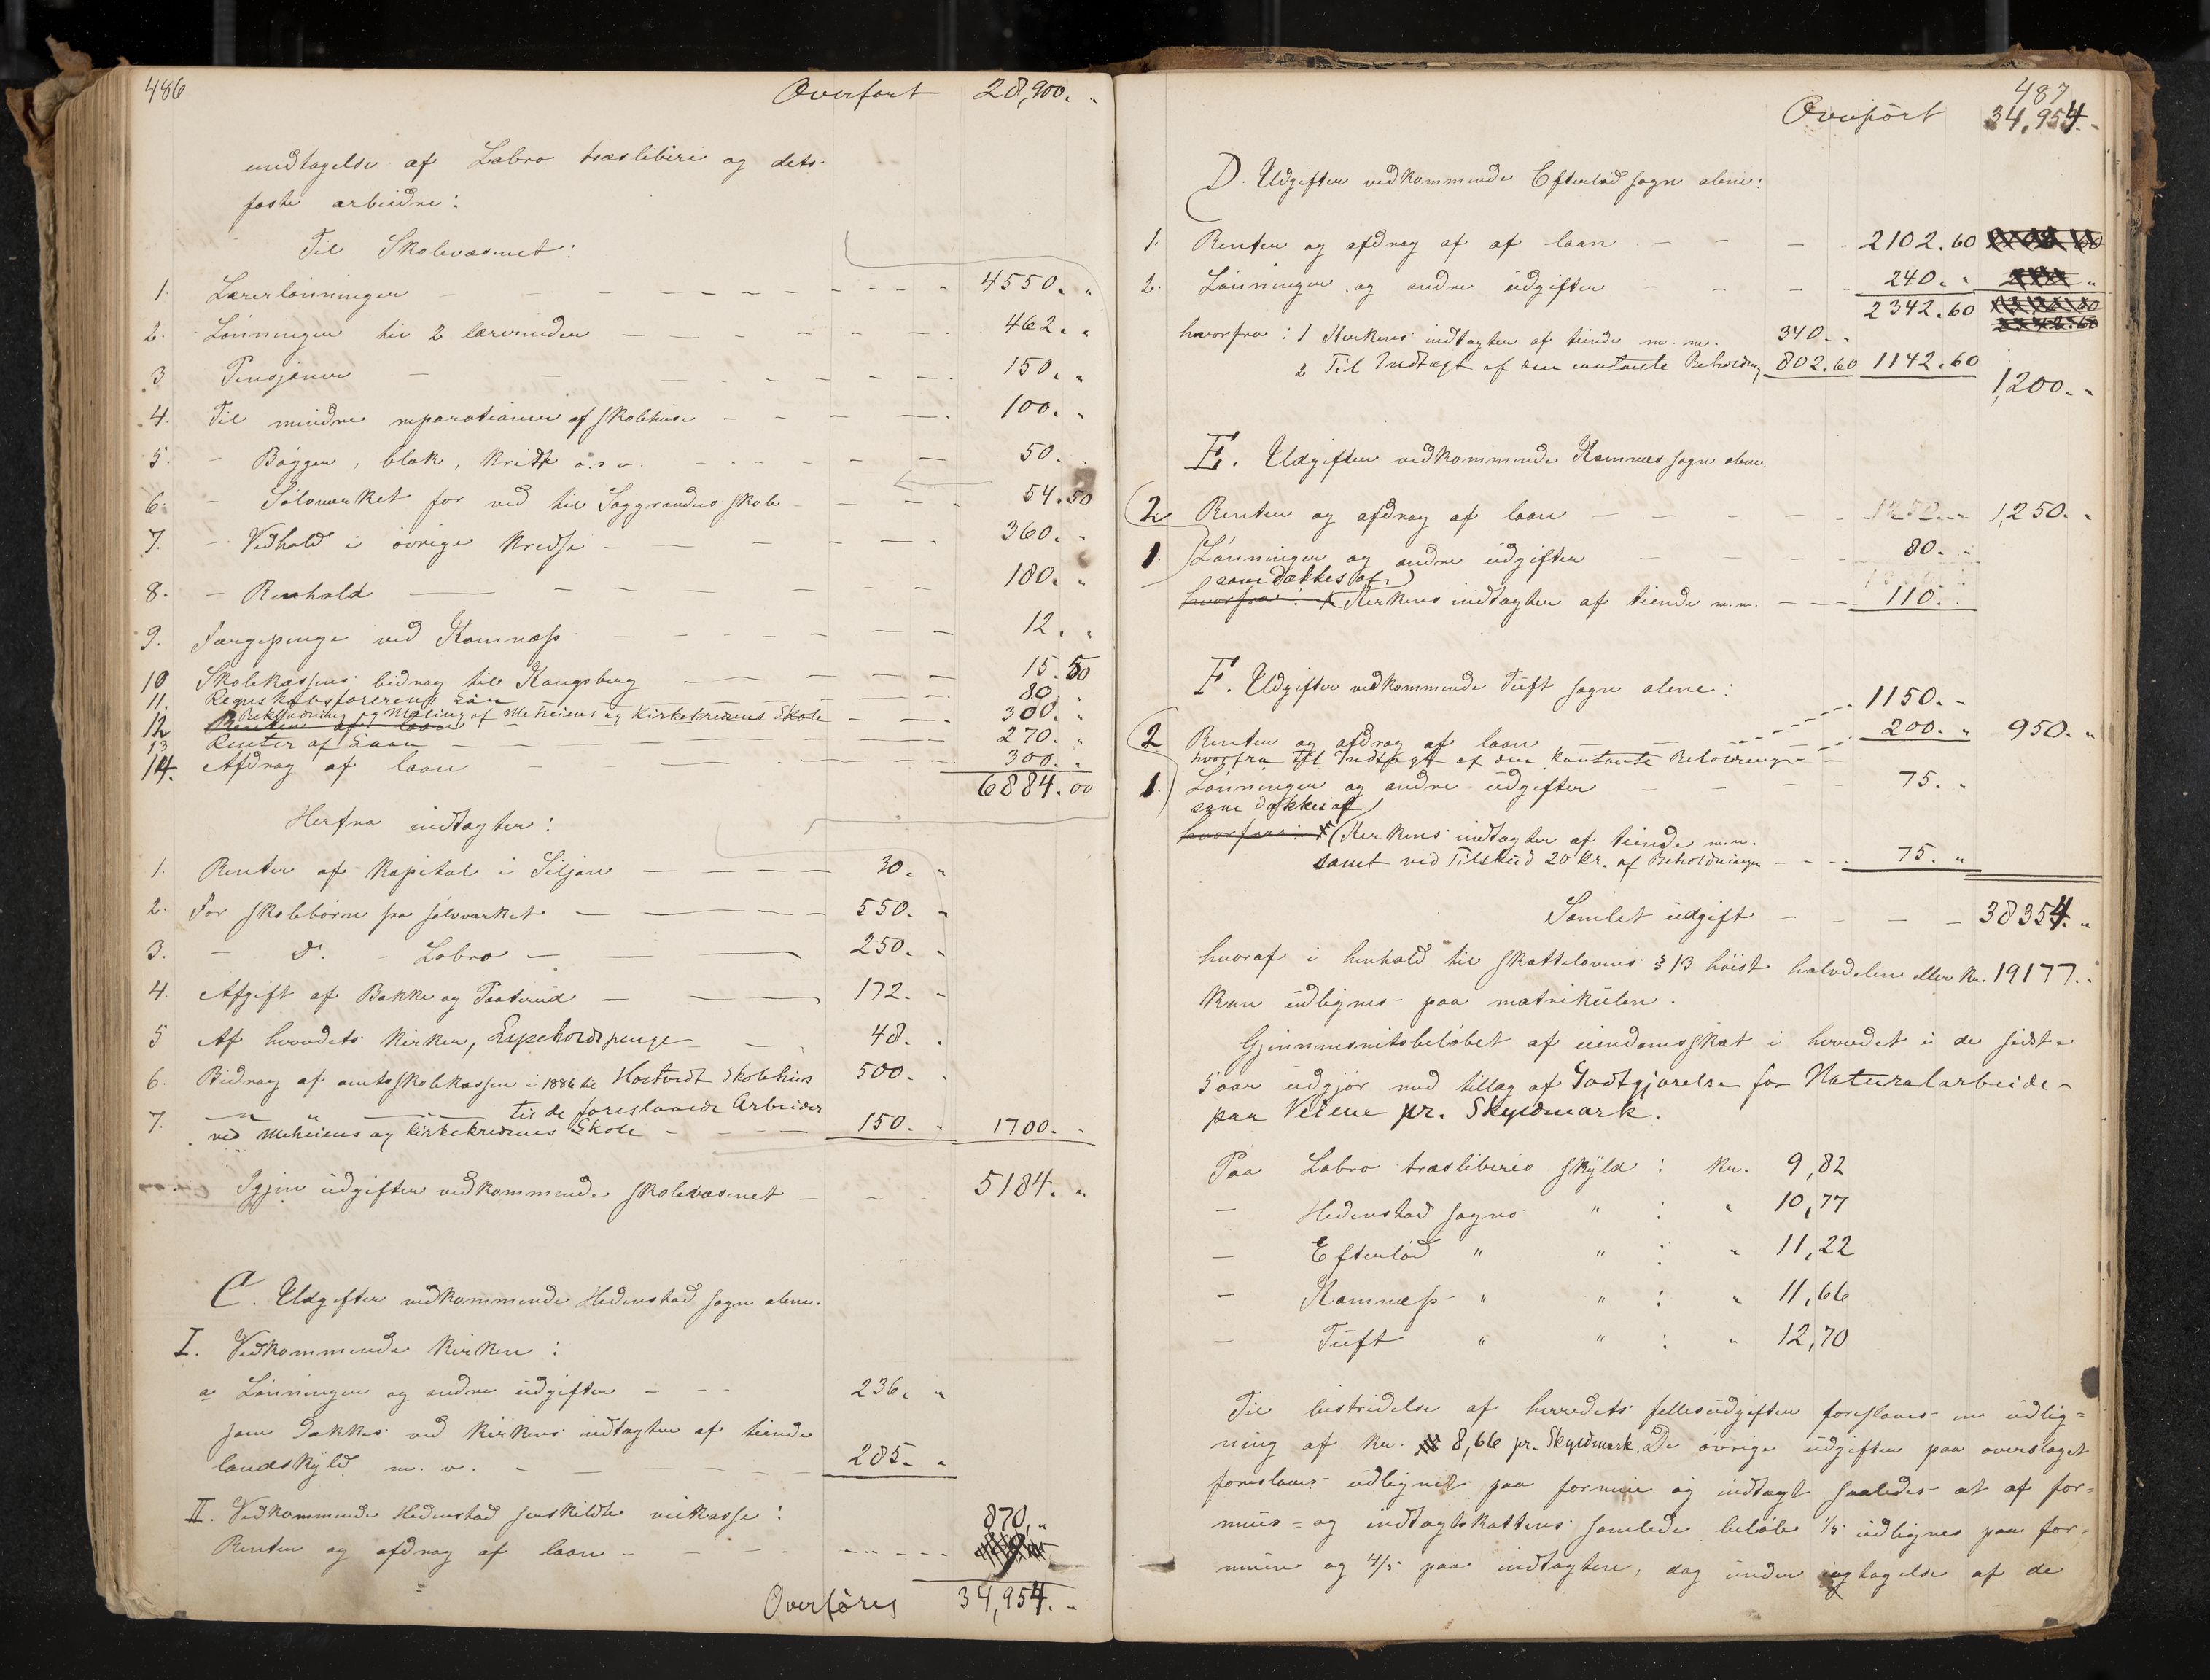 486
Overført 28,900. "
undtagelse af Labro træsliberi og dets
faste arbeidere:
Til Skolevæsenet:
1. Lærerlønninger 4550. "
2. Lønninger til 2 lærerinder 462. "
3 Pensjoner 150. "
4. Til mindre reparationer af skolehuse 100. "
5. - Bøgger, blæk, kridt o.s.v. 50.
6. - Sølvværket for ved til Saggrendens skole 54.50
7. - Vedhold i øvrige kredse 360. "
8. - Renhold 180. "
9. Færgepenge ved Komnæs 12. "
10 Skolekassens bidrag til Kongsberg 15.50
11. Regnskabsførerens Løn 80. "
12 Beklædning og Maling af Meheiens og Kirkekredsens Skole 300. "
13 Renter af Laan 270. "
14. Afdrag af laan 300. "
6884.00
Herfra indtægter:
1. Renter af Kapital i Siljan 30. "
2. For skolebørn fra sølvværket 550. "
3. - D. - Labro 250. "
4. Afgift af Bakke og Paaterud 172. -
5 Af herredets kirker, Espeholdtpenge 48. .
6. Bidrag af amtsskolekassen i 1886 til Hostvedt Skolehus 500. -
7. — " — til de foreslaaede Arbeider
ved Meheiens og Kirkekredsens Skole 150. - 1700. -
Igjen udgifter vedkommende skolevæsenet 5184. "
C. Udgifter vedkommende Hedenstad sogn alene.
I. Vedkommende kirken:
a Lønninger og andre udgifter 236. "
som dækkes ved kirkens indtægter af tiende
landskyld m. v. 285. "
II. Vedkommende Hedenstad særskildte veikasse: 870, "
Renter og afdrag af laan
Overføres 34,954. "
487
Overført 34,954. -
D. Udgifter vedkommende Efteløb sogn alene:
1. Renter og afdrag af af laan 2102.60
2. Lønninger og andre udgifter 240. "
2342.60
hvorfra: 1 Kirkens indtægter af tiende m.m. 340. "
2 Til Indtægt af den kontante Beholdning 802.60 1142.60
1,200. "
E. Udgifter vedkommende Komnes sogn alene.
2 Renter og afdrag af laan 1,250. "
1. Lønninger og andre udgifter 80. "
som dækkes af
hvorfra: 1 Kirkens indtægter af tiende m.m. 110. .
F. Udgifter vedkommende Tuft sogn alene:
1150. "
2 Renter og afdrag af laan 200. " 950. "
hvorfra til Indtægt af den kontante Beholdning
1. Lønninger og andre udgifter 75. "
som dækkes af
hvorfra: 1 Kirkens indtægter af tiende m.m.
samt ved Tilskud 20 Kr. af Beholdningen 75. "
Samlet udgift 38354. "
hvoraf i henhold til skattelovens § 13 høist halvdelen eller Kr. 19177. "
kan udlignes paa matrikulen.
Gjennemsnitsbeløbet af eiendomsskat i herredet i de sidste
5 aar udgjør med tillæg af Godtgjørelse for Naturalarbeide
paa Veiene pr. Skyldmark.
Paa Labro træsliberis skyld: Kr. 9,82
— Hedenstad sogns " : " 10,77
— Efteløb " " : " 11,22
— Komnæs " " : " 11,66
— Tuft " " : " 12,70
Til bestridelse af herredets fellesudgifter foreslaaes en udlig=
ning af Kr. 8,66 pr. Skyldmark. De øvrige udgifter paa overslaget
foreslaaes udlignet paa formue og indtægt saaledes at af for=
mues= og indtægtskattens samlede beløb 1/5 udlignes paa for=
muen og 4/5 paa indtægten, dog under iagtagelse af de